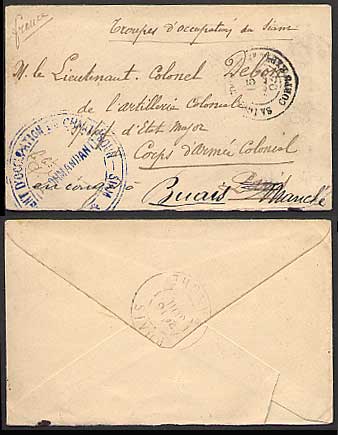 France
Troupes d'occupation du Siam
M. le Lieutenant-Colonel Debon
de l'artillerie Coloniale
d'Etat Major
Corps d'Armée Colonial
en congé à Buais
Manche
D'OCCUPATION DE CHANTABOUN SIAM
COMMANDANT
CORR. D'ARMÉES
BUAIS